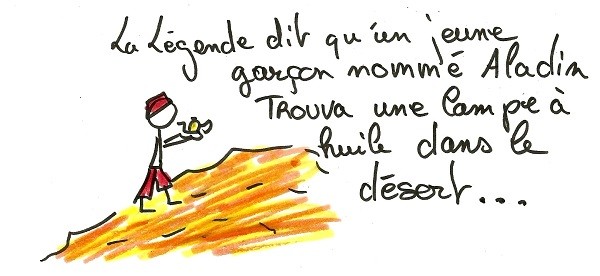 La Légende dit qu'un jeune
garçon nommé Aladin
TROUVA une lampe à
huile dans le
désert...